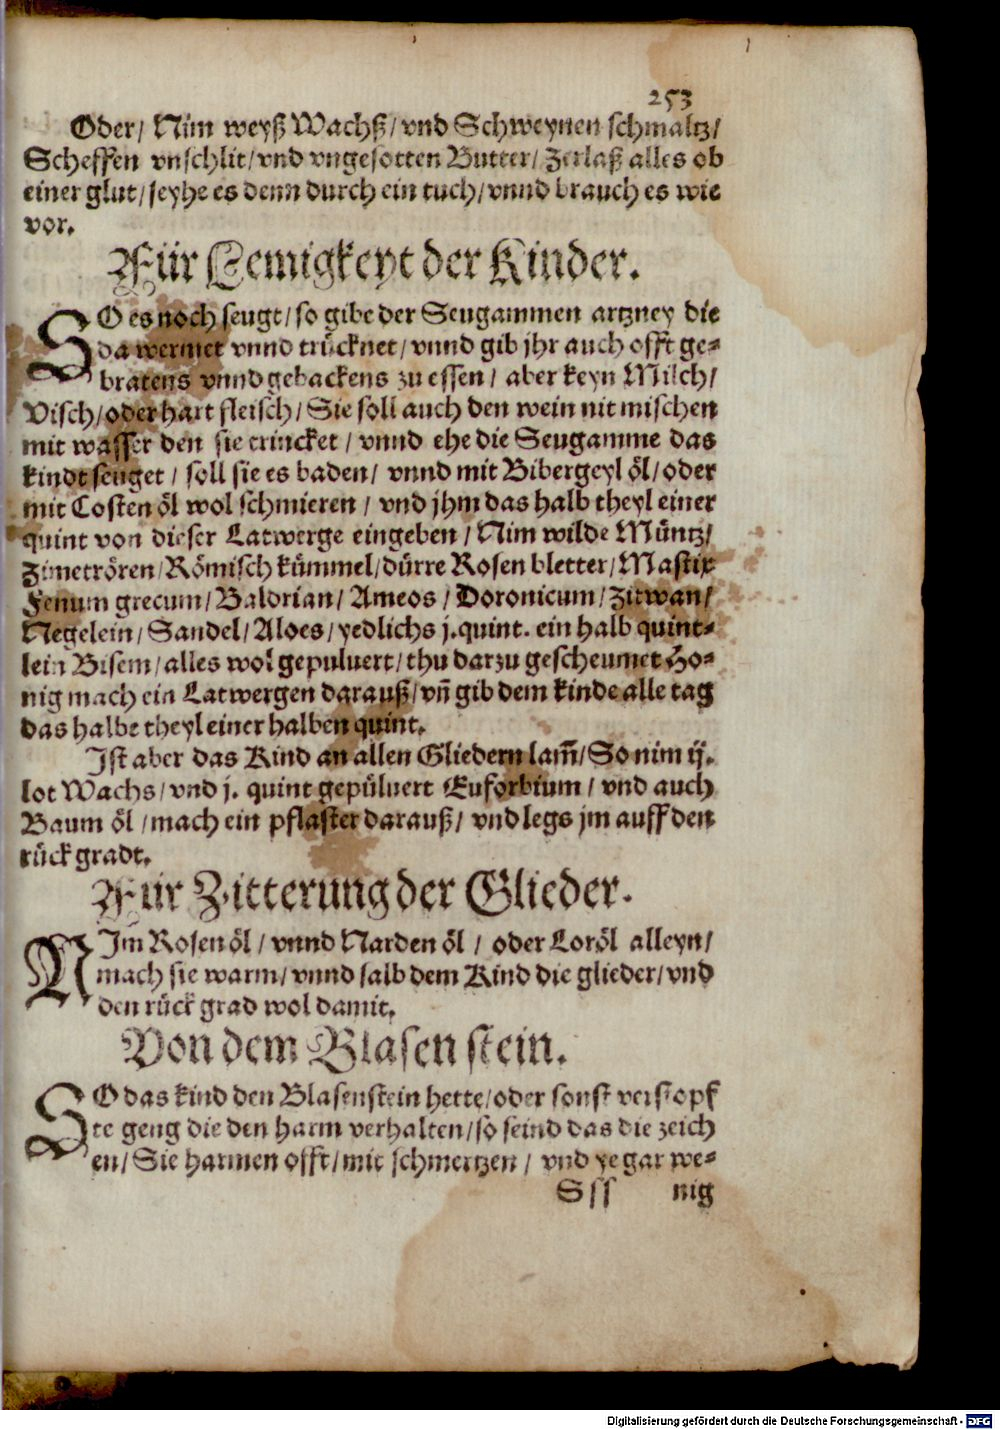 253
Oder/ Nim weyß Wachß/ vnd Schweynen schmaltz/
Scheffen vnschlit/ vnd vngesotten Butter/ Zerlaß alles ob
einer glut/ seyhe es denn durch ein tuch/ vnnd brauch es wie
vor.
Für Lemigkeyt der Kinder.
SO es noch seugt/ so gibe der Seugammen artzney die
da wermet vnnd trücknet/ vnnd gib jhr auch offt ge-
bratens vnnd gebackens zu essen/ aber keyn Milch/
Visch/ oder hart fleisch/ Sie soll auch den wein nit mischen
mit wasser den sie trincket/ vnnd ehe die Seugamme das
kindt seuget/ soll sie es baden/ vnnd mit Bibergeyl öl/ oder
mit Costen öl wol schmieren/ vnd jhm das halb theyl einer
quint von dieser Latwerge eingeben/ Nim wilde Müntz/
Zimetrören/ Römisch kümmel/ dürre Rosen bletter/ Mastix
Fenum grecum/ Baldrian/ Ameos/ Doronicum/ Zitwan/
Negelein/ Sandel/ Aloes/ yedlichs j. quint. ein halb quint-
lein Bisem/ alles wol gepuluert/ thu darzu gescheumet Ho-
nig mach ein Latwergen darauß/ vñ gib dem kinde alle tag
das halbe theyl einer halben quint.
Ist aber das Kind an allen Gliedern lam̃/ So nim ij.
lot Wachs/ vnd j. quint gepülvert Euforbium/ vnd auch
Baum öl/ mach ein pflaster darauß/ vnd legs jm auff den
rück gradt.
Für Zitterung der Glieder.
NIm Rosen öl/ vnnd Narden öl/ oder Loröl alleyn/
mach sie warm/ vnnd salb dem Kind die glieder/ vnd
den rück grad wol damit.
Von dem Blasen stein.
SO das kind den Blasenstein hette/ oder sonst verstopf
te geng die den harm verhalten/ so seind das die zeich
en/ Sie harmen offt/ mit schmertzen/ vnd ye gar we-
Sss nig
Digitalisierung gefördert durch die Deutsche Forschungsgemeinschaft - DFG